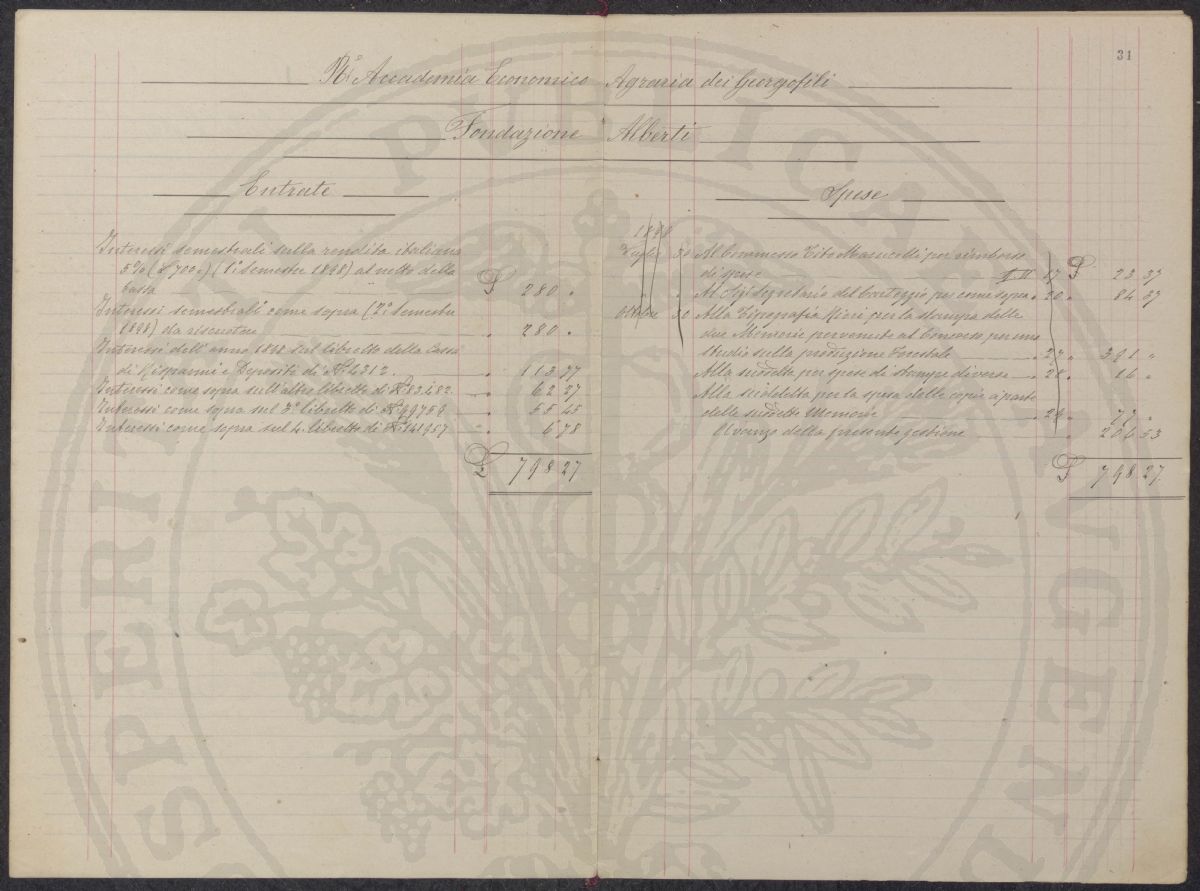 31
Rª Accademia Economico Agraria dei Georgofili
Fondazione Alberti
Entrate
Interessi semestrali sulla rendita italiana
5% (£ 700.) (1º semestre 1898) al netto della
tassa £ 280 "
Interessi semestrali come sopra (2º Semestre
1898) da riscuotere " 280 "
Interessi dell'anno 1898 sul libretto della Cassa
di Risparmi e Depositi di Nº 4312. " 113 77
Interessi come sopra sull'altro libretto di Nº 83482. " 62 27
Interessi come sopra sul 3º libretto di Nº 99756 " 55 45
Interessi come sopra sul 4. libretto di Nº 141957 " 6 78
£ 798 27
Spese
1898
Luglio 30 Al Commesso Tito Marucelli per rimborso
di spese 17 £ 23 37
" Al Sigr Segretario del Carteggio per come sopra " 20 " 84 37
Ottobre 30 Alla Tipografia Ricci per la stampa delle
due Memorie pervenute al Concorso per uno
studio sulla produzione Forestale " 27 " 391 "
Alla suddetta per spese di stampe diverse " 28 " 16 "
Alla suddetta per la spesa delle copie a parte
delle suddette Memorie 29 " 77 "
Avanzo della presente gestione " 206 53
£ 798 27
SPERITI PUBLICAE